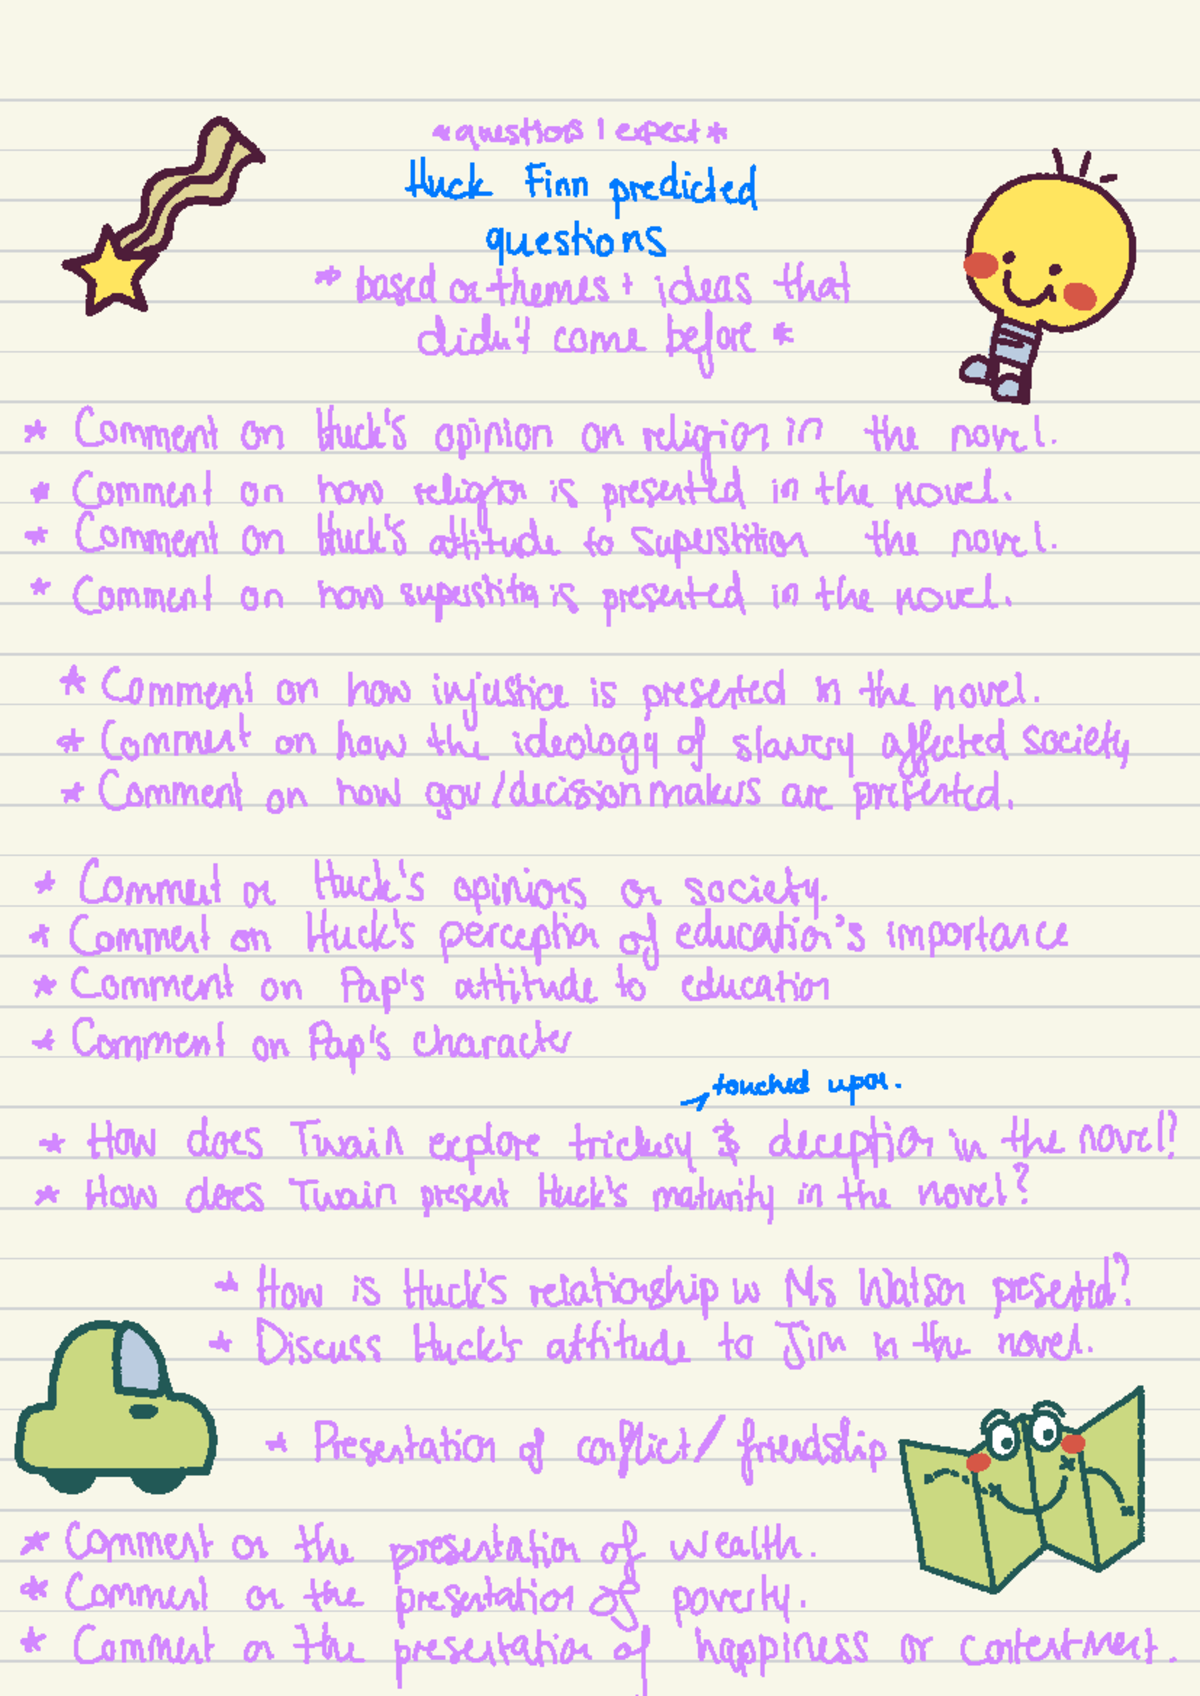 *questions I expect*
Huck Finn predicted
questions
* based on themes + ideas that
didn't come before *
* Comment on Huck's opinion on religion in the novel.
* Comment on how religion is presented in the novel.
* Comment on Huck's attitude to superstition the novel.
* Comment on how superstition is presented in the novel.
* Comment on how injustice is presented in the novel.
* Comment on how the ideology of slavery affected society
* Comment on how gov/decision makers are presented.
* Comment on Huck's opinions on society.
* Comment on Huck's perception of education's importance
* Comment on Pap's attitude to education
* Comment on Pap's character
touched upon.
* How does Twain explore trickery & deception in the novel?
* How does Twain present Huck's maturity in the novel?
* How is Huck's relationship w Ms Watson presented?
* Discuss Huck's attitude to Jim in the novel.
* Presentation of conflict/friendship
* Comment on the presentation of wealth.
* Comment on the presentation of poverty.
* Comment on the presentation of happiness or contentment.